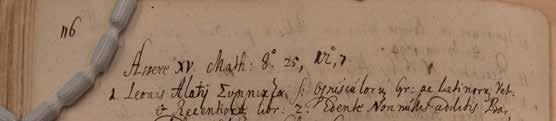 116
Assere XV Math: 8° 25, N° 7.
1. Leonis Alatij Συμμικτα, s: Opusculorũ Gr: ac Latinorũ Vet.
& Recentiorũ libr: 2: Edente Nonnullis additis Bar,